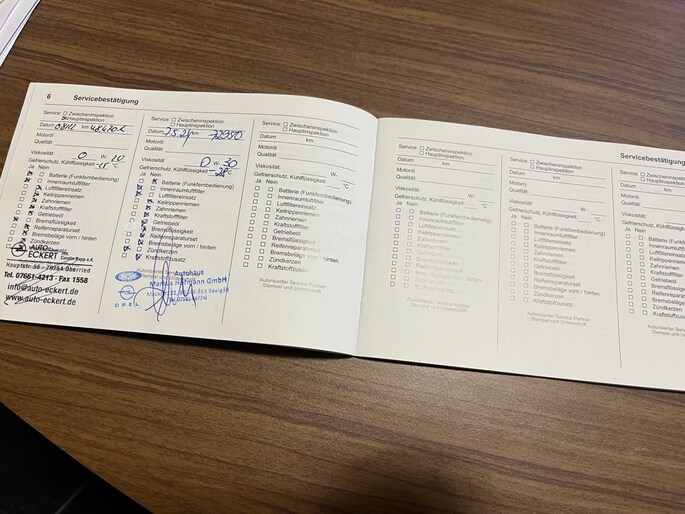 6 Servicebestätigung
Service: Zwischeninspektion
Hauptinspektion
Datum km
Motoröl
Qualität
Viskosität: 0 W- 20
Gefrierschutz, Kühlflüssigkeit °C
Ja Nein
Batterie (Funkfernbedienung)
Innenraumluftfilter
Luftfiltereinsatz
Keilrippenriemen
Zahnriemen
Kraftstofffilter
Getriebeöl
Bremsflüssigkeit
Reifenreparaturset
Bremsbeläge vorn / hinten
Zündkerzen
AUTO
ECKERT
Hauptstr. 56 - 79254 Oberried
Tel. 07661-4213 - Fax 1558
info@auto-eckert.de
www.auto-eckert.de
Service: Zwischeninspektion
Hauptinspektion
Datum km 72950
Motoröl
Qualität
Viskosität: 0 W- 30
Gefrierschutz, Kühlflüssigkeit °C
Ja Nein
Batterie (Funkfernbedienung)
Innenraumluftfilter
Luftfiltereinsatz
Keilrippenriemen
Zahnriemen
Kraftstofffilter
Getriebeöl
Bremsflüssigkeit
Reifenreparaturset
Bremsbeläge vorn / hinten
Zündkerzen
Kraftstoffzusatz
Autohaus
Markus Hofmann GmbH
OPEL
Service: Zwischeninspektion
Hauptinspektion
Datum km
Motoröl
Qualität
Viskosität: W-
Gefrierschutz, Kühlflüssigkeit °C
Ja Nein
Batterie (Funkfernbedienung)
Innenraumluftfilter
Luftfiltereinsatz
Keilrippenriemen
Zahnriemen
Kraftstofffilter
Getriebeöl
Bremsflüssigkeit
Reifenreparaturset
Bremsbeläge vorn / hinten
Zündkerzen
Kraftstoffzusatz
Autorisierter Service Partner
Stempel und Unterschrift
Servicebestätigung
Service: Zwischeninspektion
Hauptinspektion
Datum km
Motoröl
Qualität
Viskosität: W-
Gefrierschutz, Kühlflüssigkeit °C
Ja Nein
Batterie (Funkfernbedienung)
Innenraumluftfilter
Luftfiltereinsatz
Keilrippenriemen
Zahnriemen
Kraftstofffilter
Getriebeöl
Bremsflüssigkeit
Reifenreparaturset
Bremsbeläge vorn / hinten
Zündkerzen
Kraftstoffzusatz
Autorisierter Service Partner
Stempel und Unterschrift
Service: Zwischeninspektion
Hauptinspektion
Datum km
Motoröl
Qualität
Viskosität: W-
Gefrierschutz, Kühlflüssigkeit °C
Ja Nein
Batterie (Funkfernbedienung)
Innenraumluftfilter
Luftfiltereinsatz
Keilrippenriemen
Zahnriemen
Kraftstofffilter
Getriebeöl
Bremsflüssigkeit
Reifenreparaturset
Bremsbeläge vorn / hinten
Zündkerzen
Kraftstoffzusatz
Autorisierter Service Partner
Stempel und Unterschrift
Service:
Datum
Motoröl
Qualität
Viskosität:
Gefrierschutz,
Ja Nein